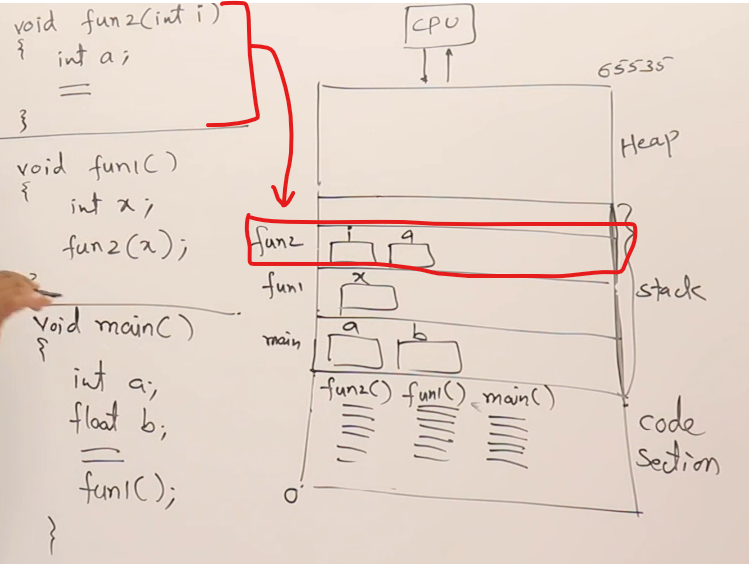 void fun2(int i)
{
int a;
}
void fun1()
{
int x;
fun2(x);
}
void main()
{
int a;
float b;
fun1();
}
CPU
65535
Heap
fun2
i
a
fun1
x
stack
main
a
b
fun2() fun1() main()
code
section
0